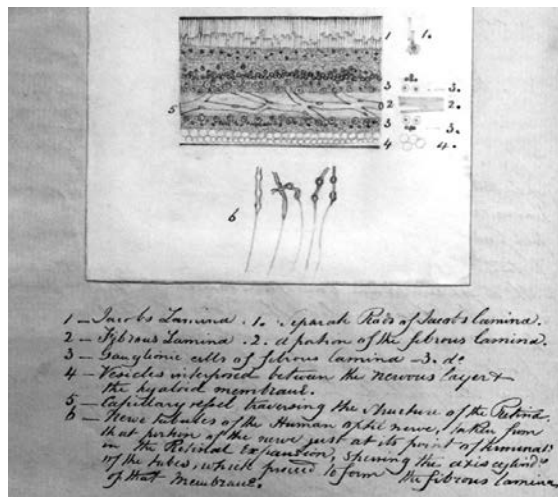 1 1.
3 3.
5 2 2.
3 3.
4 4.
6
1 – Jacobs Lamina . 1. . eparate Rods of Jacobs lamina.
2 – Fibrous Lamina . 2. a potion of the fibrous lamina.
3 – Ganglionic cells of fibrous lamina – 3. do
4 – Vesicles interposed between the nervous layer &
the hyaloid membrane.
5 – Capillary vessel traversing the structure of the Retina.
6 – Nerve tubules of the Human optic nerve, taken from
that portion of the nerve just at its point of
in the Retinal Expansion, the axis
of the tubes, which proceed to form the fibrous lamina
of that Membrane.